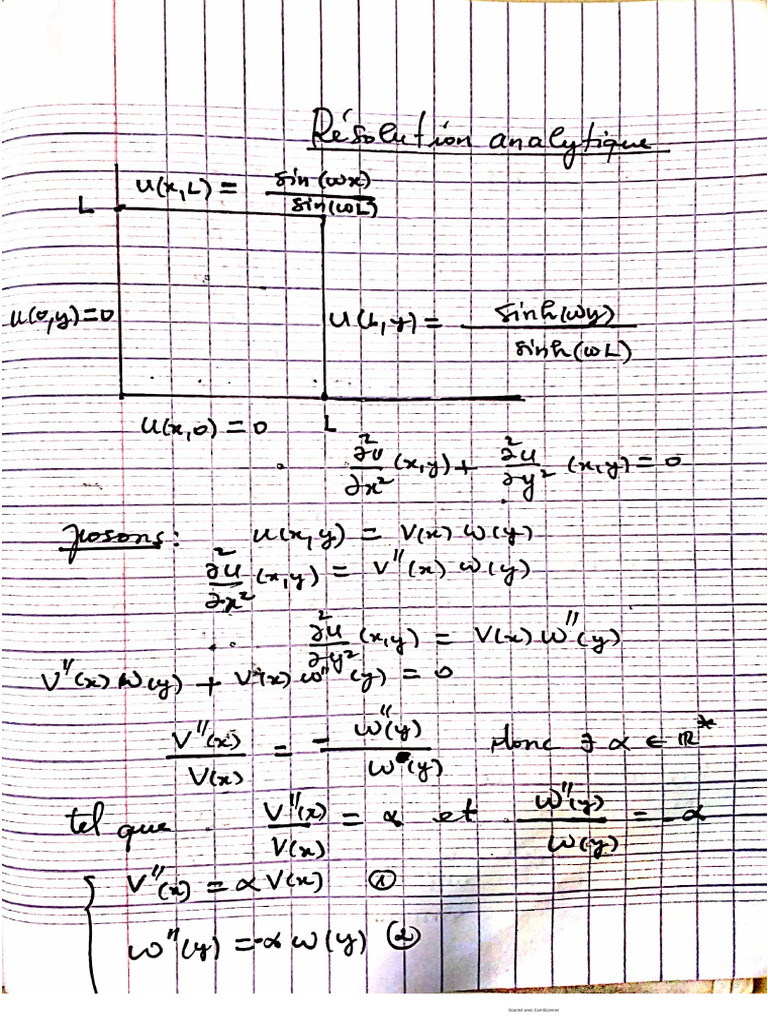 Résolution analytique
u(x,L) = sin(ωx) / sin(ωL)
L
u(0,y)=0
u(L,y) = sinh(ωy) / sinh(ωL)
u(x,0) = 0
L
∂²u/∂x² (x,y) + ∂²u/∂y² (x,y) = 0
posons : u(x,y) = V(x) W(y)
∂²u/∂x² (x,y) = V''(x) W(y)
∂²u/∂y² (x,y) = V(x) W''(y)
V''(x) W(y) + V(x) W''(y) = 0
V''(x)/V(x) = - W''(y)/W(y) donc ∃ α ∈ ℝ*
tel que V''(x)/V(x) = α et W''(y)/W(y) = -α
{ V''(x) = α V(x) ①
W''(y) = -α W(y) ②
Scanné avec CamScanner